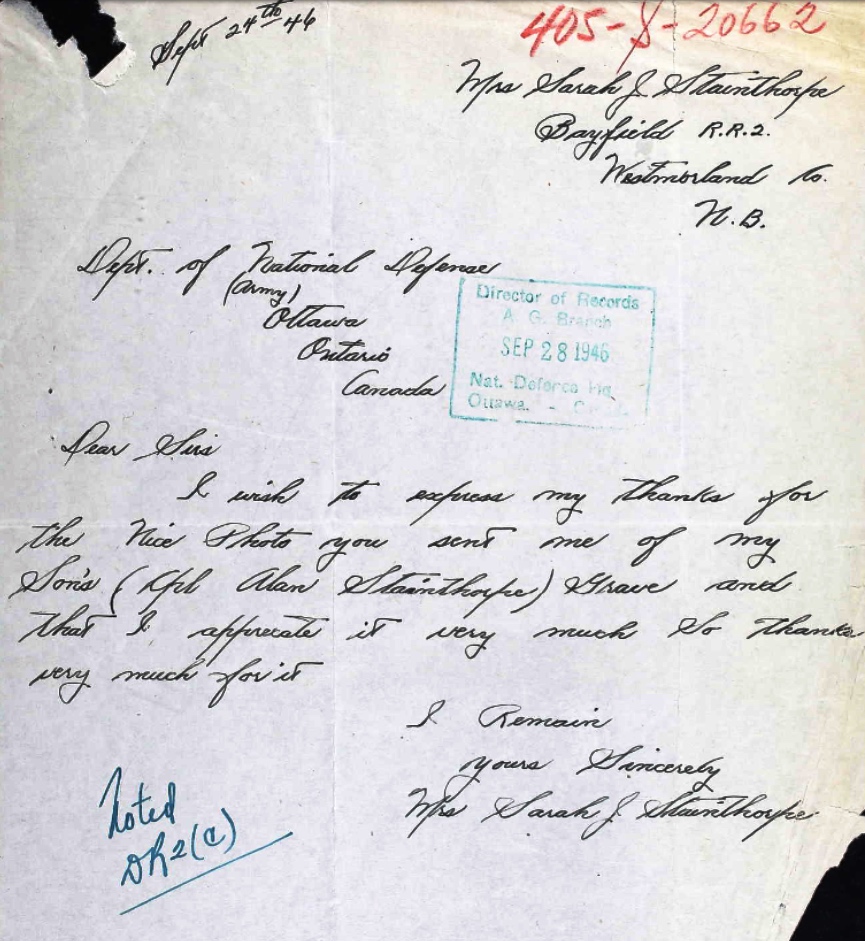 Sept 24th 46
405-S-20662
Mrs Sarah J. Stainthorpe
Bayfield R.R.2.
Westmorland Co.
N.B.
Dept. of National Defense
(Army)
Ottawa
Ontario
Canada
Director of Records
A. G. Branch
SEP 28 1946
Nat. Defence Hq
Ottawa. -
Dear Sirs
I wish to express my thanks for
the Nice Photo you sent me of my
Son's (Cpl Alan Stainthorpe) Grave and
that I apprecate it very much So thanks
very much for it
I Remain
yours Sincerely
Mrs Sarah J. Stainthorpe
Noted
DR2(a)